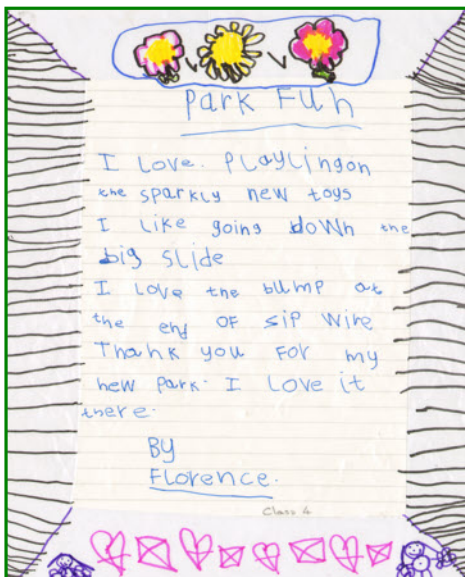 Park Fun
I Love. PLayLingon
the sparkly new toys
I Like going doWn the
big slide
I Love the bump at
the end OF sip wire
Thank you For my
new Park. I Love it
there.
By
FLorence.
Class 4